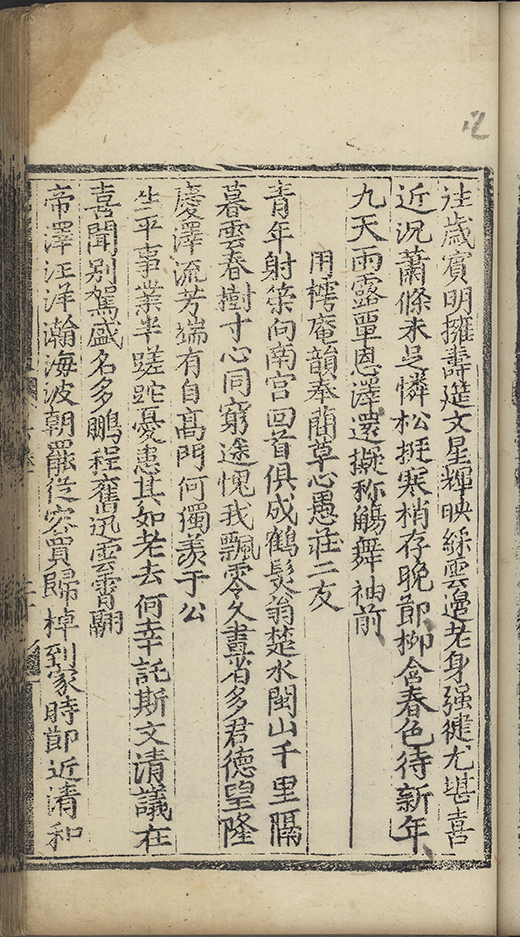 徃歲賓明擁壽筵文星輝映綵雲邊老身强健尤堪喜
近況蕭條未足憐松挺寒梢存晚節柳含春色待新年
九天雨露覃恩澤還擬称觴舞袖前
用樗庵韻奉蘭草心愚莊二友
青年射策向南宫回首俱成鶴髮翁楚水閩山千里隔
暮雲春樹寸心同窮途愧我飄零久畫省多君德望隆
慶澤流芳端有自高門何獨羡于公
生平事業半蹉跎憂患其如老去何幸託斯文清議在
喜聞别駕盛名多鵬程奮迅雲霄闊
帝澤汪洋瀚海波朝罷從容買歸棹到家時節近清和